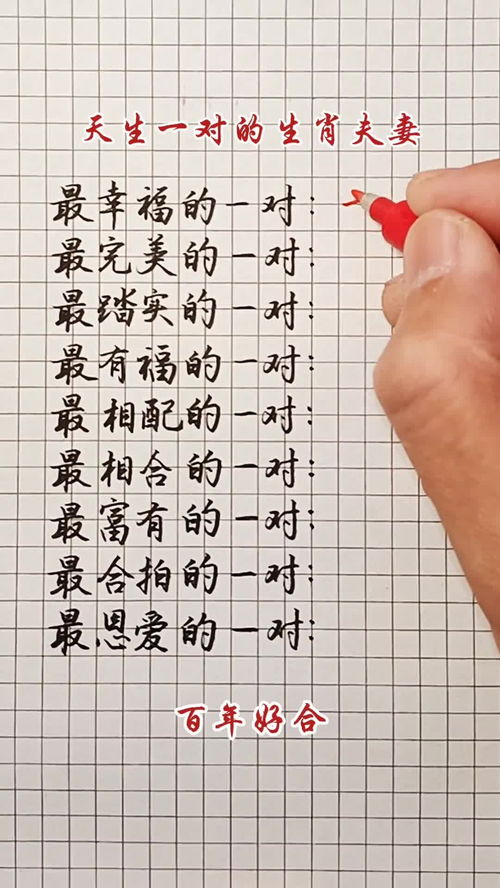 天生一对的生肖夫妻
最幸福的一对：
最完美的一对：
最踏实的一对：
最有福的一对：
最相配的一对：
最相合的一对：
最富有的一对：
最合拍的一对：
最恩爱的一对：
百年好合